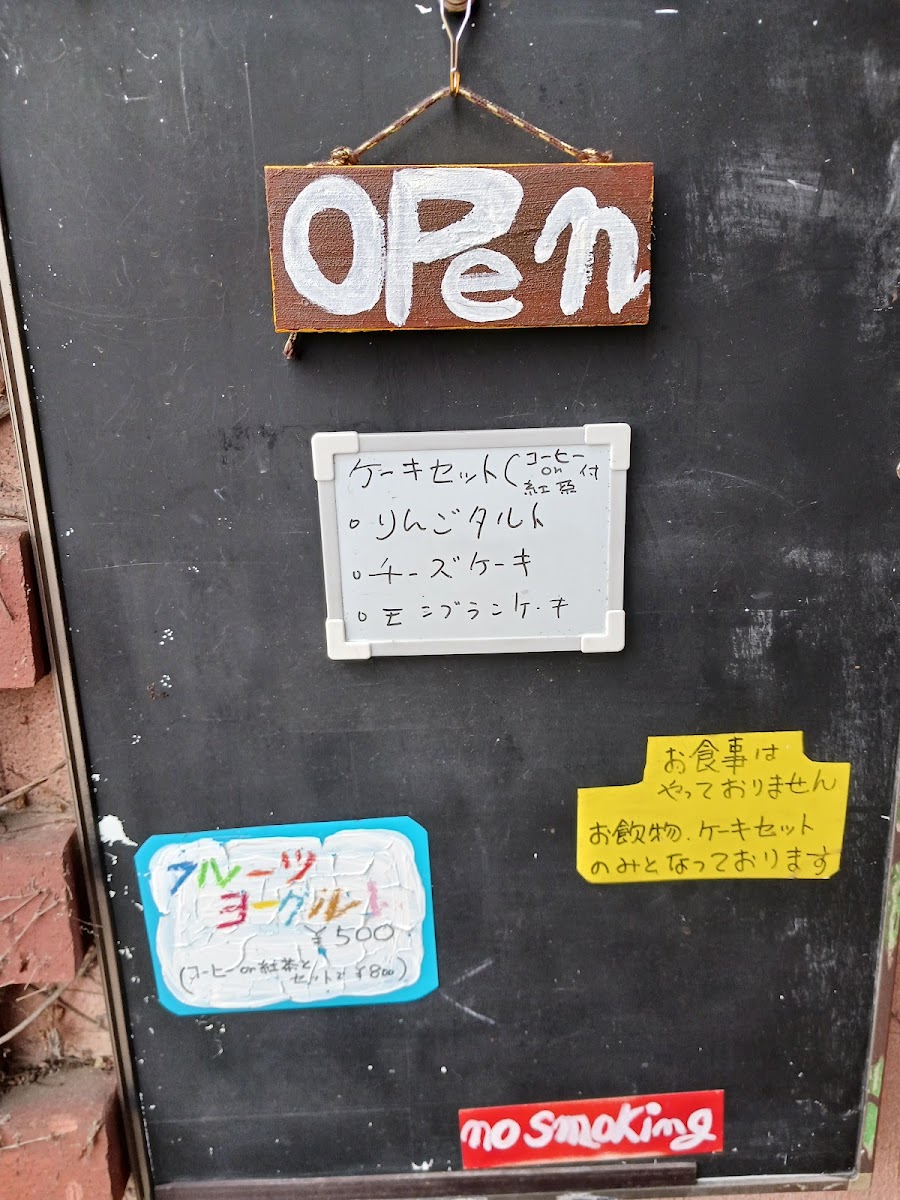 OPen
ケーキセット(コーヒー
or
紅茶 付
○りんごタルト
○チーズケーキ
○モンブランケーキ
お食事は
やっておりません
お飲物、ケーキセット
のみとなっております
フルーツ
ヨーグルト
¥500
(コーヒーor紅茶と
セットで¥800)
no smoking